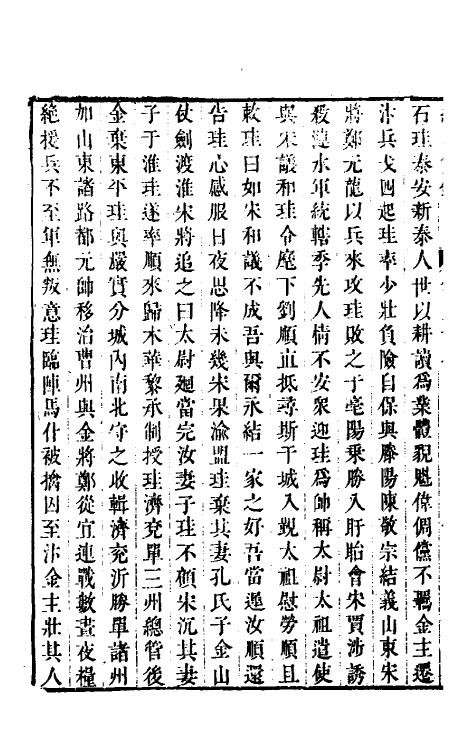 石珪泰安新泰人世以耕讀爲業體貌魁偉倜儻不羈金主遷
汴兵戈四起珪率少壯負險自保與滕陽陳敬宗結義山東宋
將鄭元龍以兵來攻珪敗之于亳陽乘勝入盱眙會宋賈涉誘
殺漣水軍統轄季先人情不安衆迎珪爲帥稱太尉太祖遣使
與宋議和珪令麾下劉順直抵尋斯干城入覲太祖慰勞順且
敕珪曰如宋和議不成吾與爾永結一家之好吾當逹汝順還
告珪心感服日夜思降未幾宋果渝盟珪棄其妻孔氏子金山
仗劍渡淮宋將追之曰太尉迴當完汝妻子珪不顧宋沉其妻
子于淮珪遂率順來歸木華黎承制授珪濟兗單三州總管後
金棄東平珪與嚴實分城內南北守之收輯濟兗沂滕單諸州
加山東諸路都元帥移治曹州與金將鄭從宜連戰數晝夜糧
絕援兵不至軍無叛意珪臨陣馬仆被擒囚至汴金主壯其人